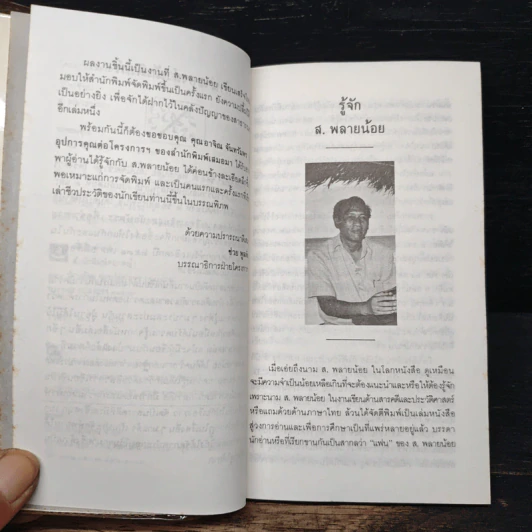 ผลงานชิ้นนี้เป็นงานที่ ส.พลายน้อย เขียน
มอบให้สำนักพิมพ์จัดพิมพ์ขึ้นเป็นครั้งแรก
เป็นอย่างยิ่ง เพื่อจักได้ฝากไว้ในคลังปัญญาของ
อีกเล่มหนึ่ง
พร้อมกันนี้ก็ต้องขอขอบคุณ คุณอาจิณ จันทรัมพร
อุปการคุณต่อโครงการฯ ของสำนักพิมพ์เสมอมา
พาผู้อ่านได้รู้จักกับ ส.พลายน้อย ได้ค่อนข้างละเอียด
พอเหมาะแก่การจัดพิมพ์ และเป็นคนแรกและครั้งแรก
เล่าชีวประวัติของนักเขียนท่านนี้ขึ้นในบรรณพิภพ
ด้วยความปรารถนา
ช่วย
บรรณาธิการฝ่าย
รู้จัก
ส. พลายน้อย
เมื่อเอ่ยถึงนาม ส. พลายน้อย ในโลกหนังสือ ดูเหมือน
จะมีความจำเป็นน้อยเหลือเกินที่จะต้องแนะนำและหรือให้ต้องรู้จัก
เพราะนาม ส. พลายน้อย ในงานเขียนด้านสารคดีและประวัติศาสตร์
หรือแถมด้วยด้านภาษาไทย ล้วนได้จัดตีพิมพ์เป็นเล่มหนังสือ
สู่วงการอ่านและเพื่อการศึกษาเป็นที่แพร่หลายอยู่แล้ว บรรดา
นักอ่านหรือที่เรียกขานกันเป็นสากลว่า "แฟน" ของ ส. พลายน้อย